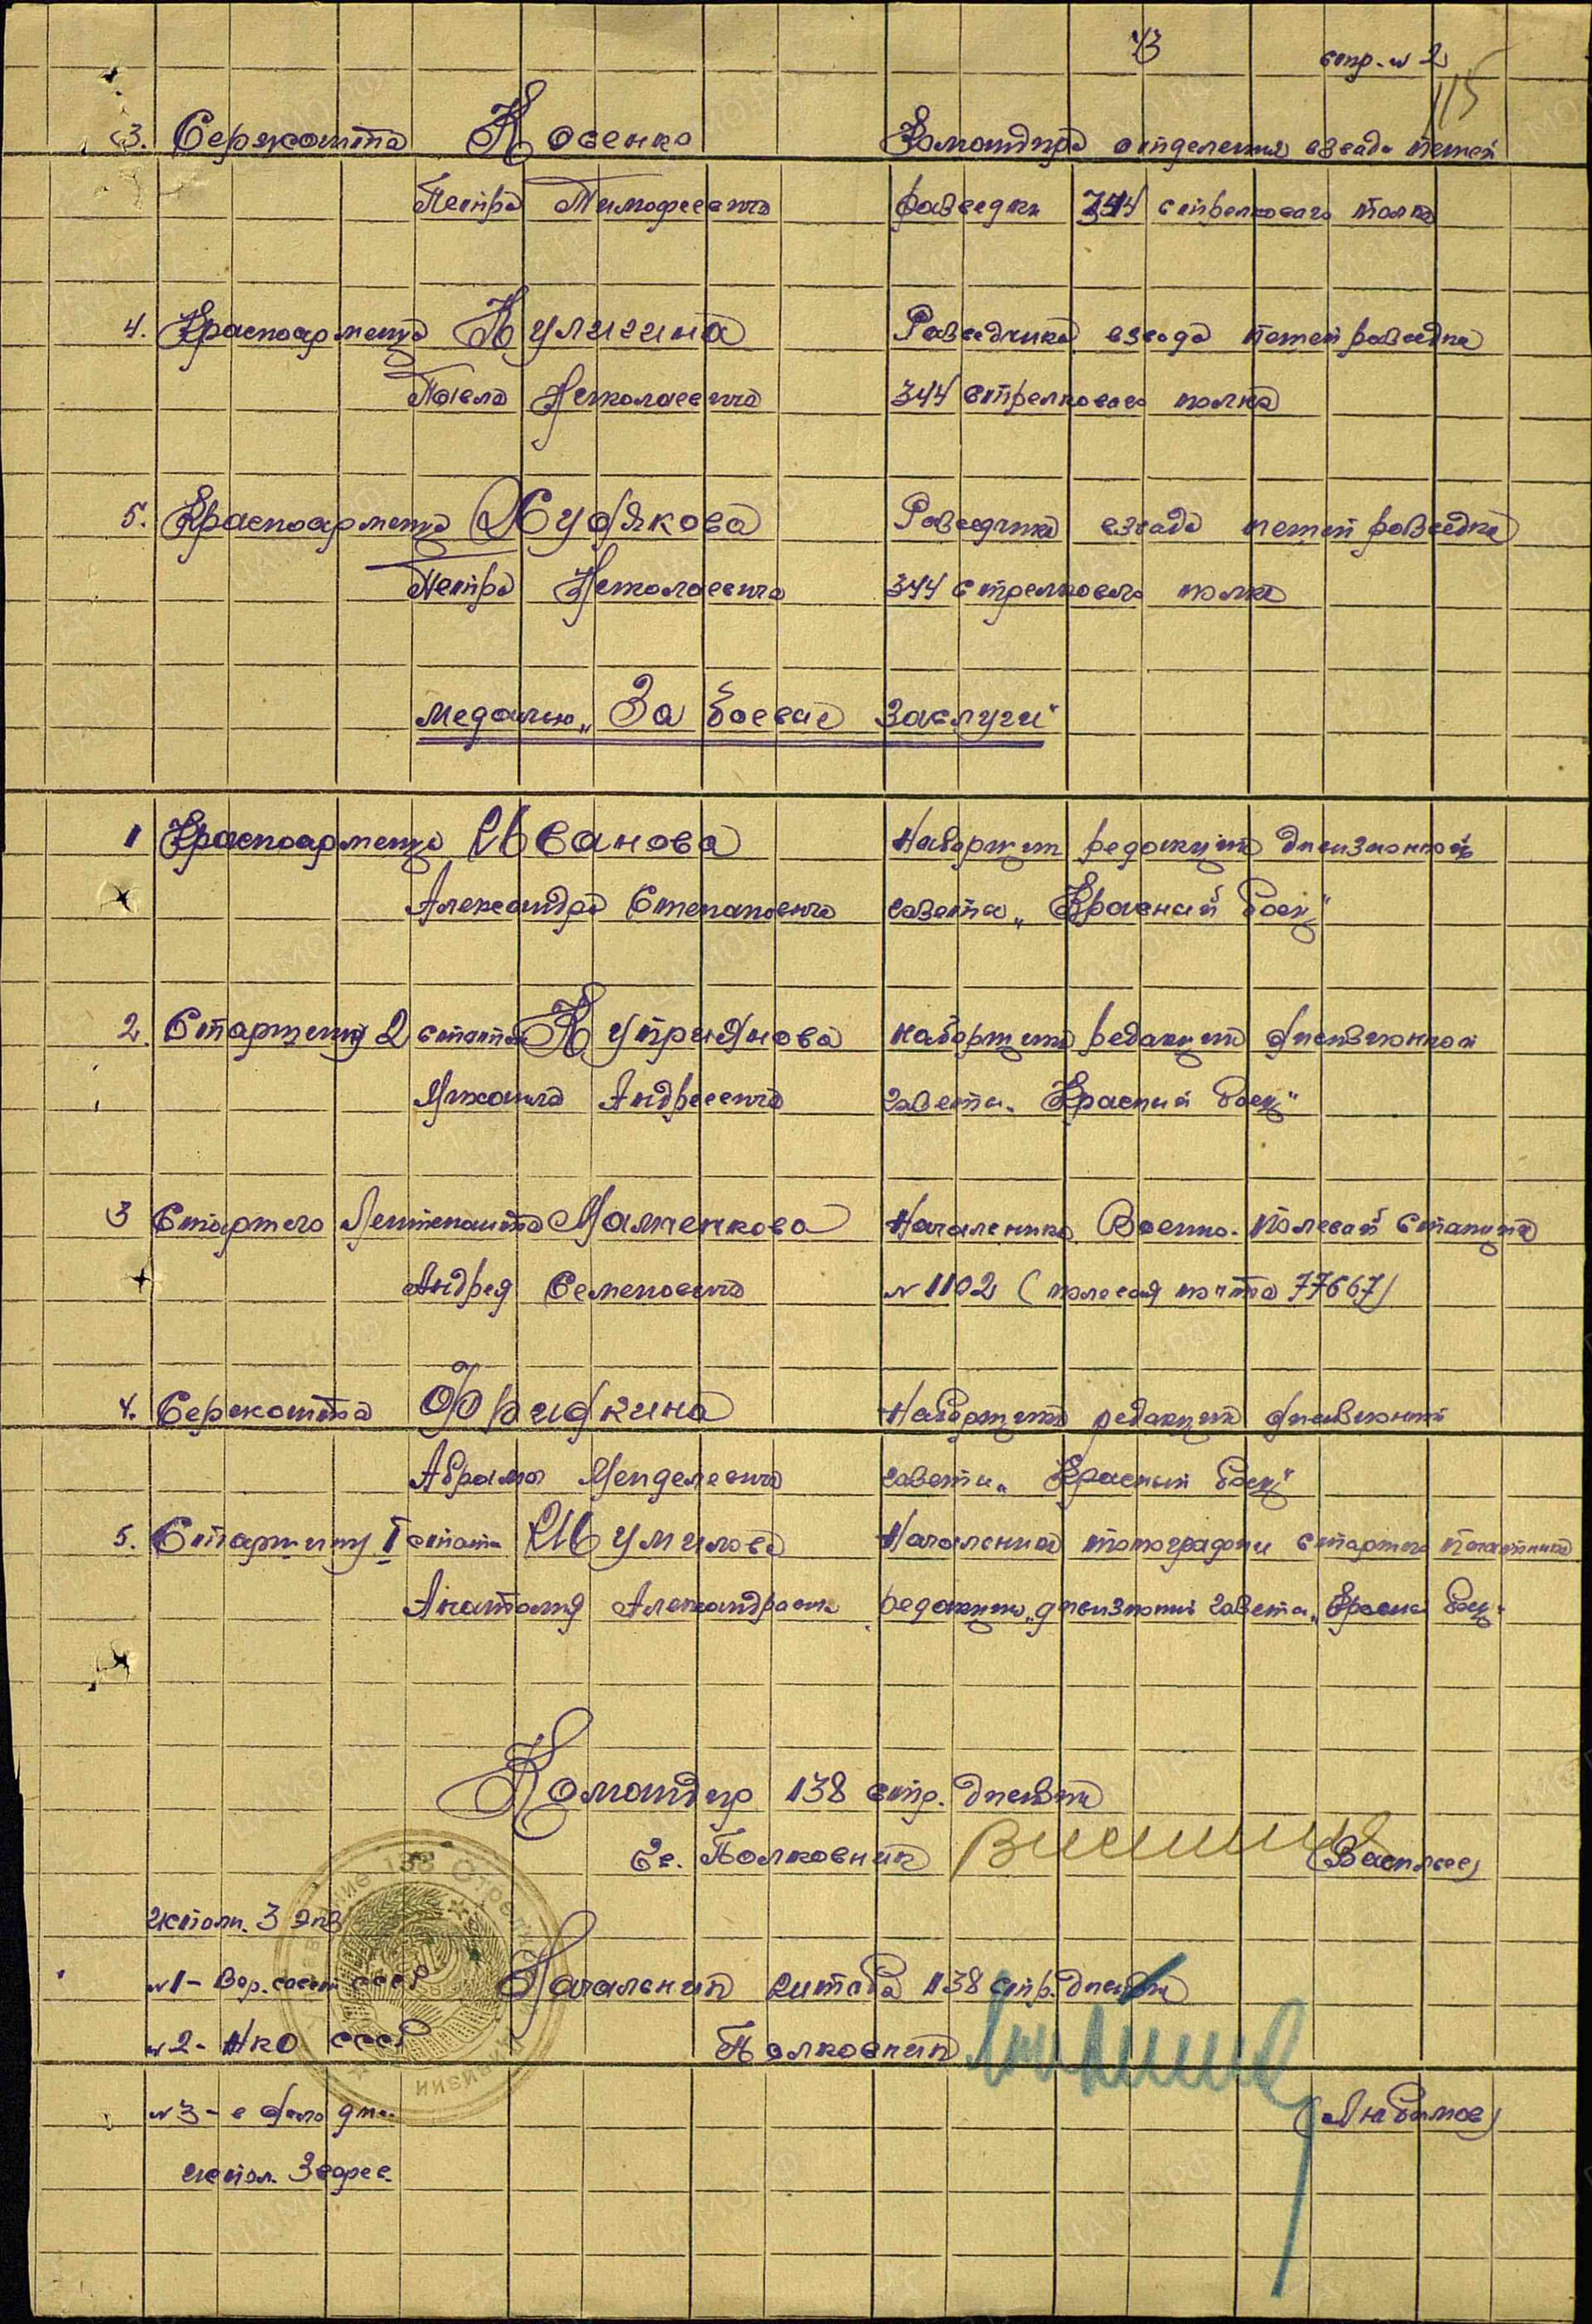 43
стр. № 2
115
3. Сержанта Косенко Командира отделения взвода пешей
Петра Тимофеевича разведки 344 стрелкового полка
4. Красноармейца Куличина Разведчика взвода пешей разведки
Павла Николаевича 344 стрелкового полка
5. Красноармейца Худякова Разведчика взвода пешей разведки
Петра Николаевича 344 стрелкового полка
медалью „За боевые заслуги"
1 Красноармейца Иванова Наборщика редакции дивизионной
Александра Степановича газеты „Красный боец"
2. Старшину 2 статьи Куприянова наборщика редакции дивизионной
Михаила Андреевича газеты „Красный боец"
3 Старшего Лейтенанта Маленкова Начальника Военно-Полевой Станции
Андрея Семеновича № 1102 (полевая почта 77667)
4. Сержанта Фридкина Наборщика редакции дивизионной
Абрама Менделевича газеты „Красный боец"
5. Старшину I статьи Шумилова Начальника типографии старшего печатника
Анатолия Александрович редакции дивизионной газеты „Красный боец"
Командир 138 стр. дивизии
Гв. Полковник (Васильев)
Исполн. 3 экз
№ 1 - Вер. совет СССР Начальник штаба 138 стр. дивизии
№ 2 - НКО СССР Полковник
№ 3 - в дело див. (Любимов)
испол.
138 Стрелковой дивизии